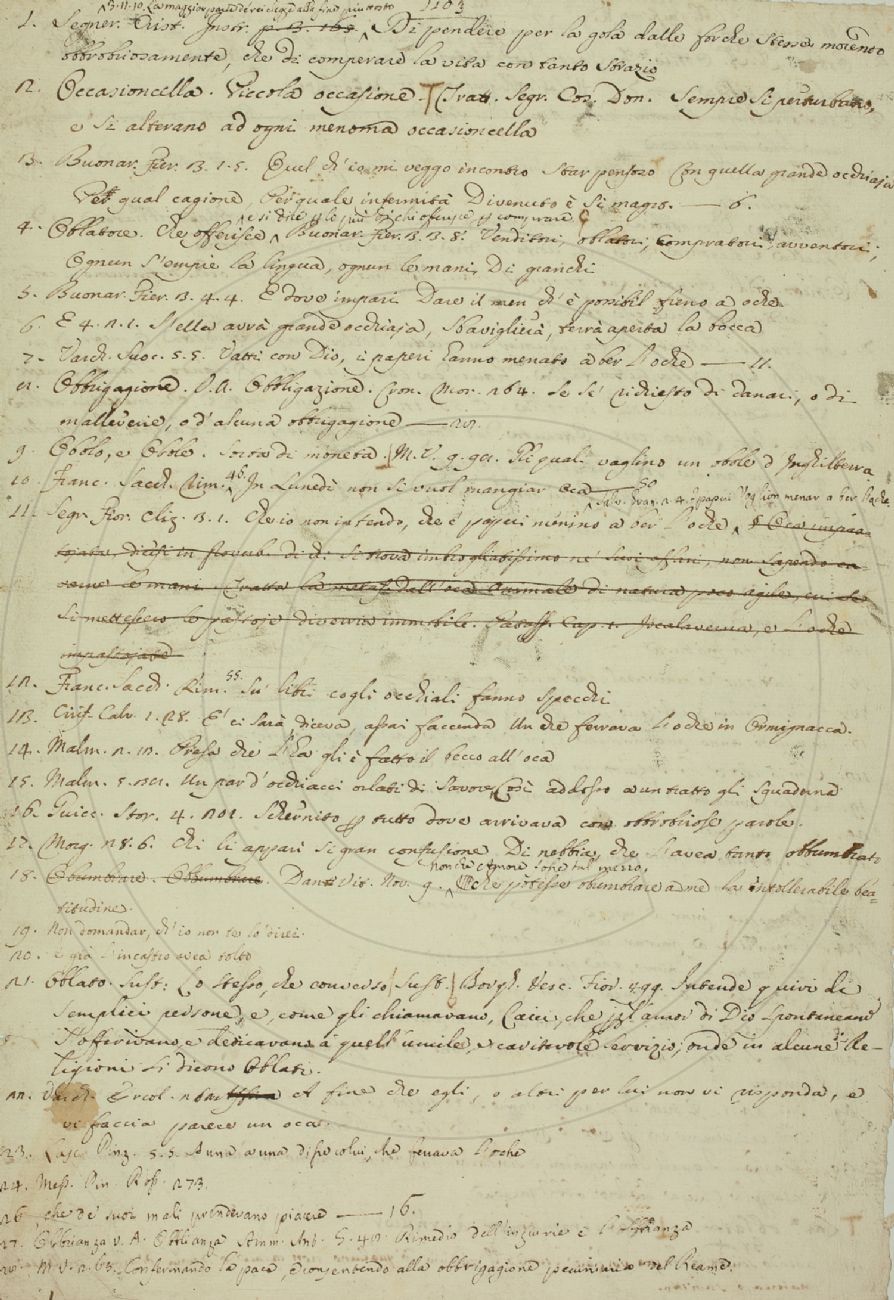 1103
3.11.10. La maggior parte de rei elegge alla fine più tosto
1. Segner. Crist. Instr. p. 3. 163. Di pendere per la gola dalle forche stesse morendo
obbrobriosamente, che di comperare la vita con tanto strazio
2. Occasioncella. Piccola occasione. Tratt. Segr. Cos. Don. Sempre si perturbano,
e si alterano ad ogni menoma occasioncella
3. Buonar. Fier. 3. 1. 5. Quel ch'io mi veggo incontro star pensoso Con quella grande occhiaja
Per qual cagione, Per quale infermità Divenuto è sì magro. — 6.
e si dice
4. Oblatore. Che offerisce Buonar. Fier. 3. 3. 8. Venditori, oblatori, compratori, avventori,
Ognun s'empie la lingua, ognun le mani, Di granchi
5. Buonar. Fier. 3. 4. 4. E dove impari Dare il men ch'è possibil fieno a oche
6. E 4. 2. 1. Stella avrà grande occhiaja, sbaviglierà, terrà aperta la bocca
7. Varch. Suoc. 5. 5. Vatti con Dio, i paperi hanno menato a ber l'oche — 11.
8. Obbligagione. V. A. Obbligazione. Cron. Mor. 264. Se se' richiesto di danari, o di
mallevérie, o d'alcuna obbligagione —
9. Obolo, e Obole. Sorta di moneta M. V. 9. Pe' quali vaglino un obole d'Inghilterra
10. Franc. Sacch. Rim. 46. In Lunedì non si vuol mangiar oca — 30
i paperi voglion menar a ber l'oche
11. Segr. Fior. Cliz. 3. 1. Che io non intendo, che i paperi menino a ber l'oche Oca impas-
tojata, dicesi in proverb. di chi si trova imbrogliatissimo ne' suoi affari, non sapendo ca-
varne le mani. Tratta la metaf. dall'oca animale di natura poco agile, cui se
si mettessero le pastoje diverria immobile. Pataff. Cap. 1. e l'oche
impastojate
12. Franc. Sacch. Rim. 55. Su' libri cogli occhiali fanno specchi
13. Ciriff. Calv. 1. 28. E' ci sarà diceva, assai faccenda Un che ferrava l'oche in Ormignacca.
14. Malm. 2. Presa che l'ha gli è fatto il becco all'oca
15. Malm. 5. Un par d'occhiacci orlati di savore Così addosso a un tratto gli squaderna
16. Guicc. Stor. 4. 201. Schernito per tutto dove arrivava con obbrobriose parole.
17. Morg. 28. 6. Chi li appari sì gran confusione Di nebbia, che l'avea tanto obbumbrato
18. Obumbrare. Obbumbrare. Dant. Vit. Nov. 9. che potesse obumbrare a me la intollerabile bea-
titudine.
19. Non domandar, ch'io non te lo direi.
20. E già l'incastro avea tolto
21. Oblato. Sust. Lo stesso, che converso Sust. Borgh. Vesc. Fior. 499. Intende quivi di
semplici persone, e, come gli chiamavano, Laici, che per l'amor di Dio spontaneam.
s'offerivano, e dedicavano a quell'umile, e caritatevole servizio; onde in alcune Re-
ligioni si dicono Oblati.
22. Varch. Ercol. A fine che egli, o altri per lui non vi risponda, e
vi faccia parere un oca.
23. Lasc. Pinz. 5. 5. A una a una che ferrava l'oche
24. Mess. Cin. Rif. 273.
26. che de' suoi mali prendevano piacere — 16.
27. Obblianza V. A. Obblianza Amm. Ant. G. Rimedio dell'ingiurie è l'obblianza
28. M. V. 2. 63. Confermando la pace, e consentendo alla obbrigagione del Reame.